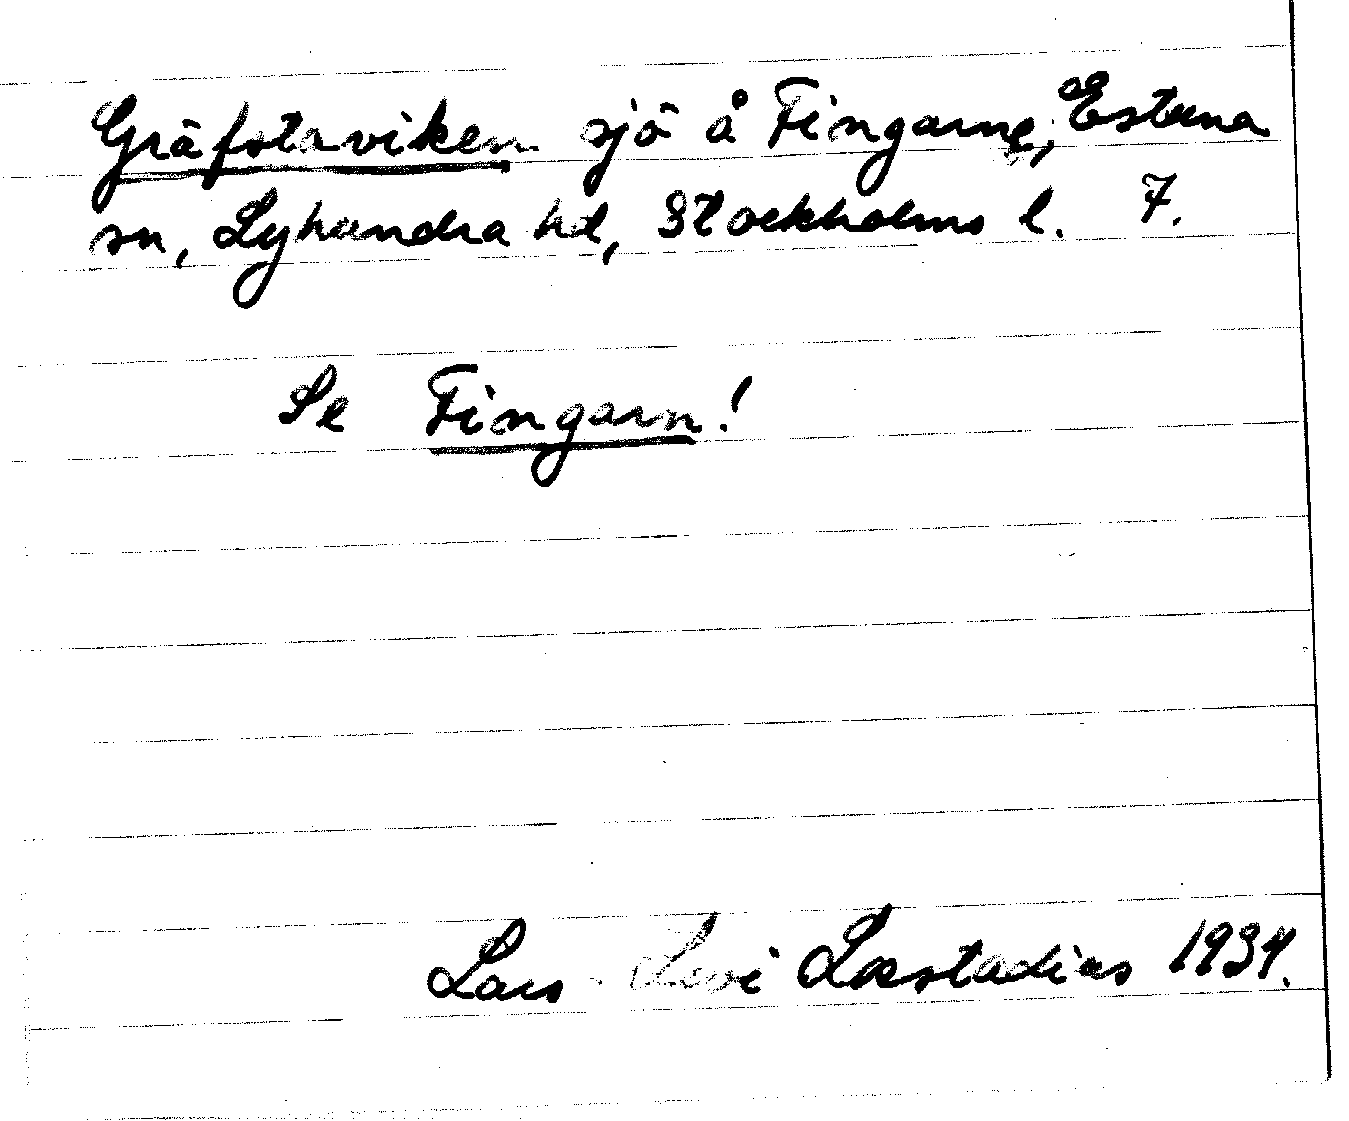 Gräfstaviken sjö å Fingarne, Estuna
sn, Lyhundra hd, Stockholms l. 7.
Se Fingarn!
Lars-Levi Læstadius 1934.